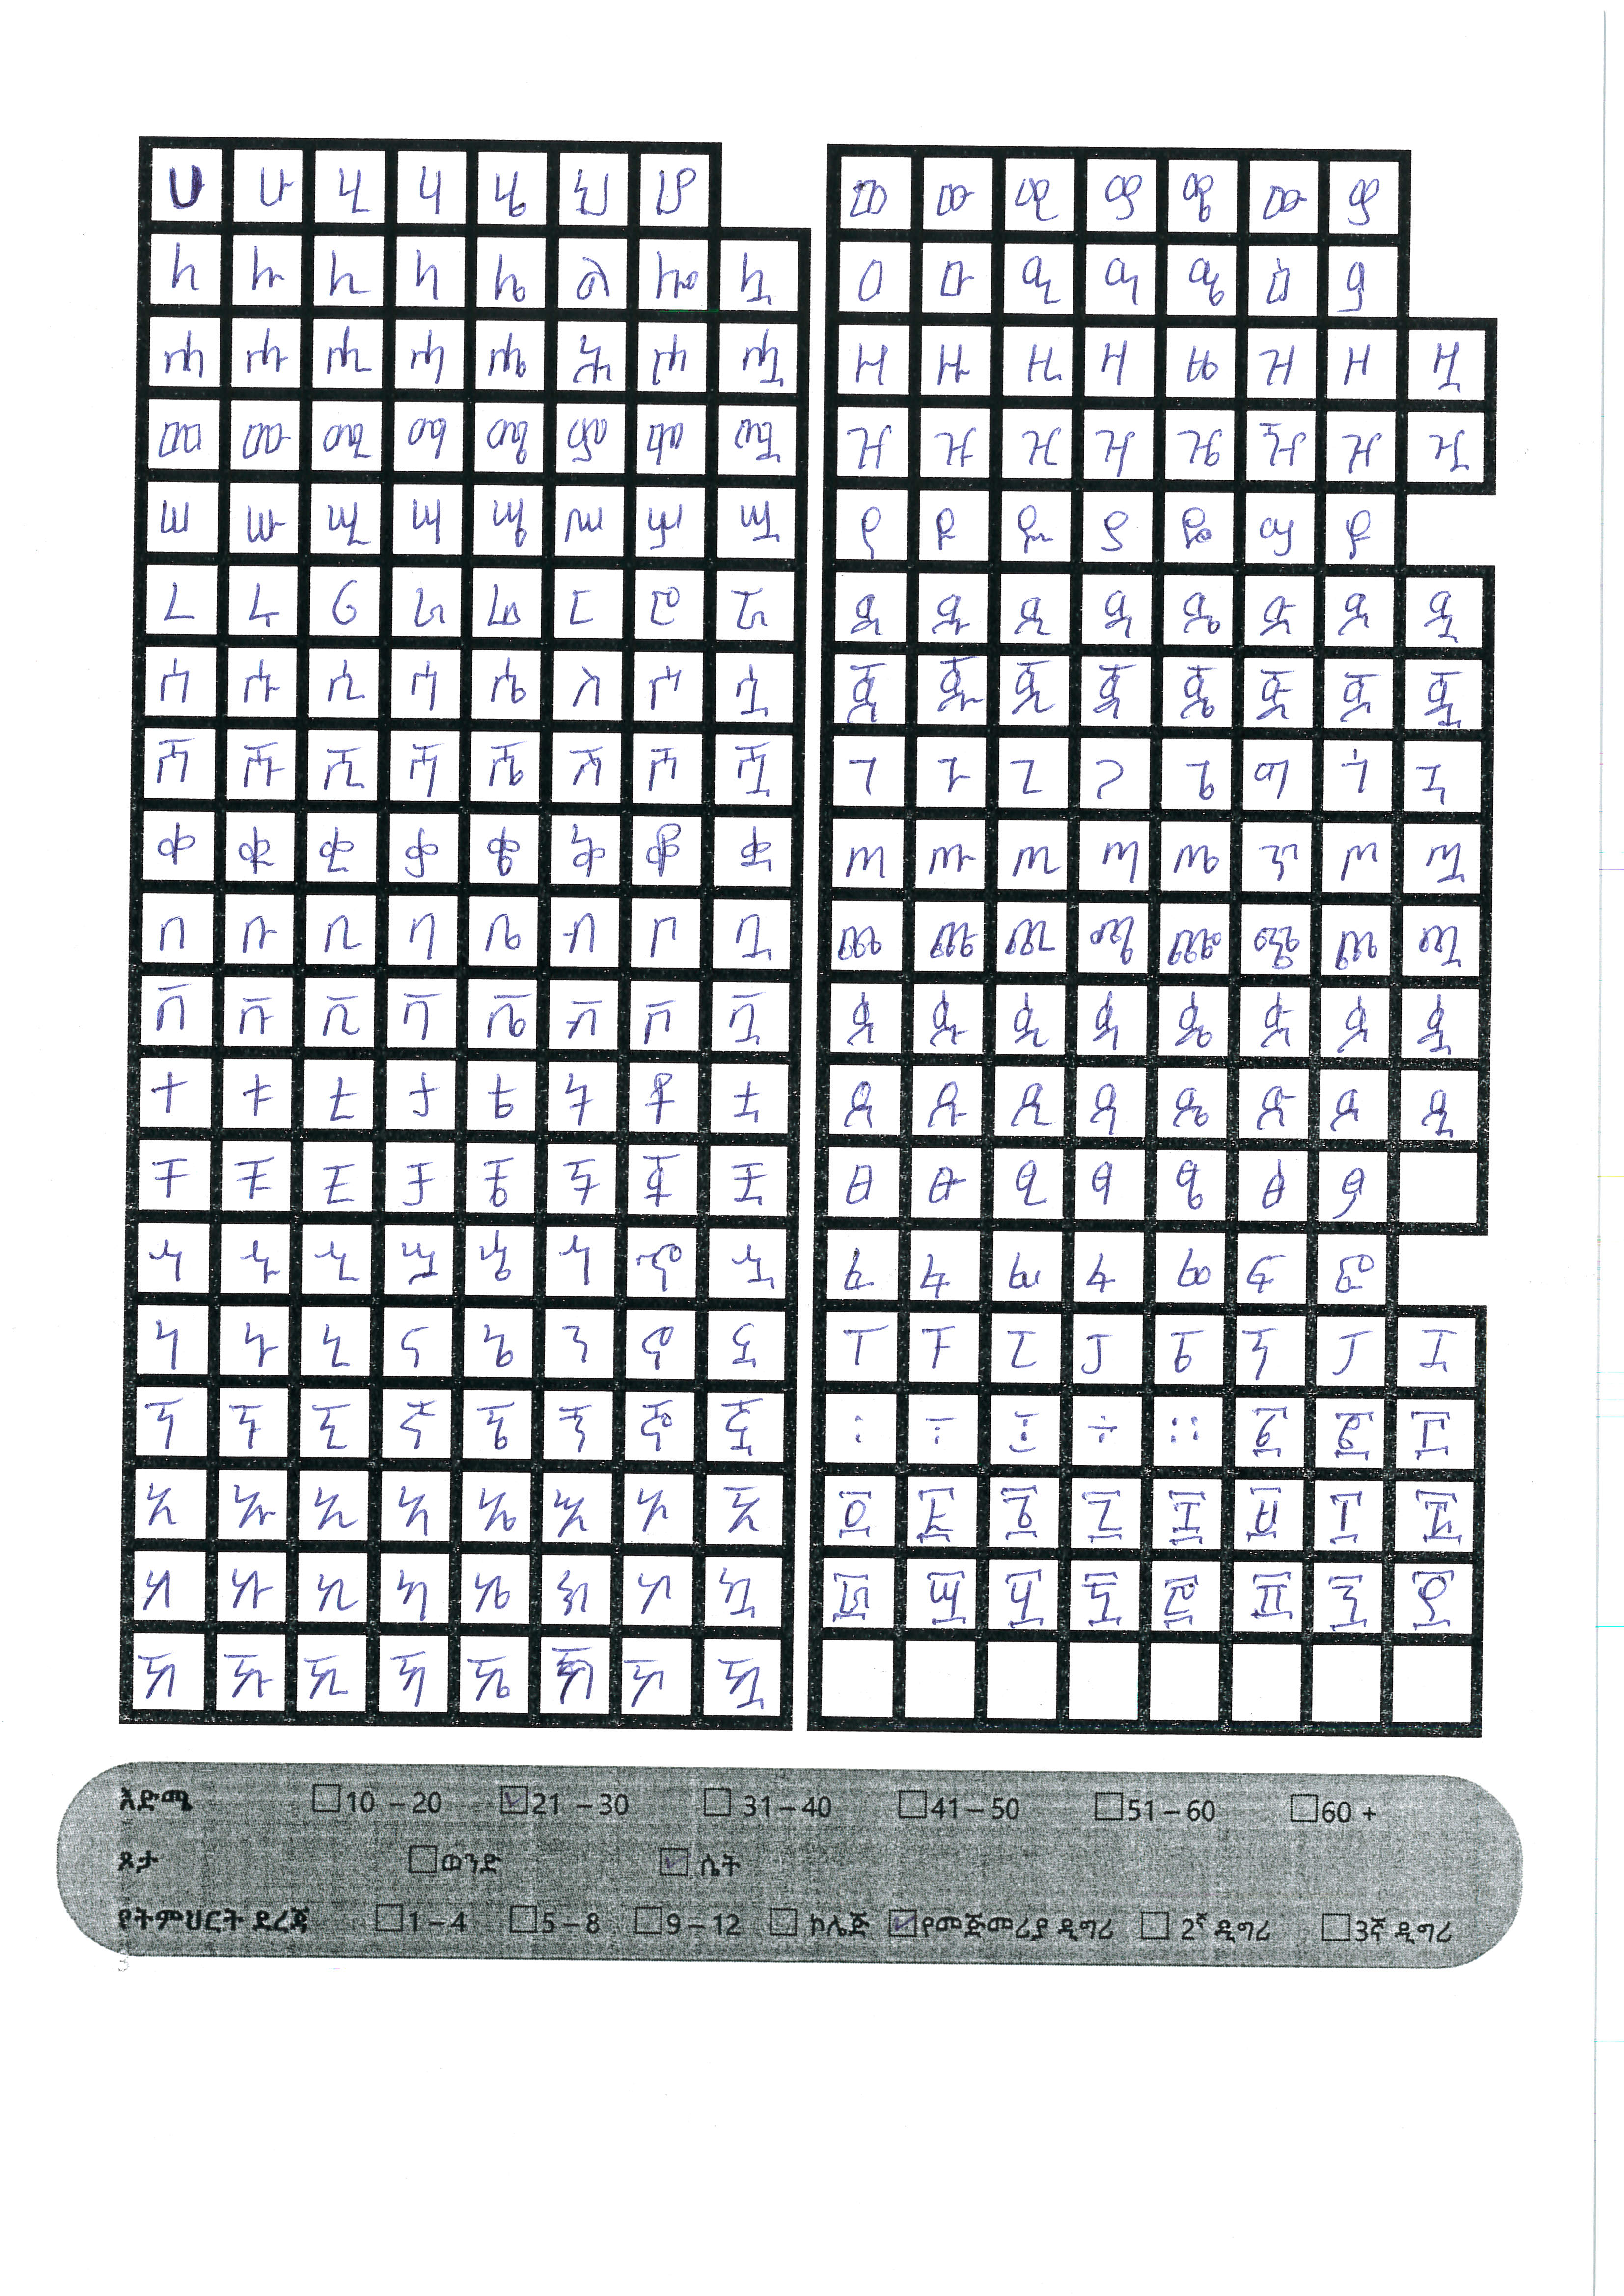 ሀ ሁ ሂ ሃ ሄ ህ ሆ
ለ ሉ ሊ ላ ሌ ል ሎ ሏ
ሐ ሑ ሒ ሓ ሔ ሕ ሖ ሗ
መ ሙ ሚ ማ ሜ ም ሞ ሟ
ሠ ሡ ሢ ሣ ሤ ሥ ሦ ሧ
ረ ሩ ሪ ራ ሬ ር ሮ ሯ
ሰ ሱ ሲ ሳ ሴ ስ ሶ ሷ
ሸ ሹ ሺ ሻ ሼ ሽ ሾ ሿ
ቀ ቁ ቂ ቃ ቄ ቅ ቆ ቋ
በ ቡ ቢ ባ ቤ ብ ቦ ቧ
ቨ ቩ ቪ ቫ ቬ ቭ ቮ ቯ
ተ ቱ ቲ ታ ቴ ት ቶ ቷ
ቸ ቹ ቺ ቻ ቼ ች ቾ ቿ
ኀ ኁ ኂ ኃ ኄ ኅ ኆ ኋ
ነ ኑ ኒ ና ኔ ን ኖ ኗ
ኘ ኙ ኚ ኛ ኜ ኝ ኞ ኟ
አ ኡ ኢ ኣ ኤ እ ኦ ኧ
ከ ኩ ኪ ካ ኬ ክ ኮ ኳ
ኸ ኹ ኺ ኻ ኼ ኽ ኾ ዃ
ወ ዉ ዊ ዋ ዌ ው ዎ
ዐ ዑ ዒ ዓ ዔ ዕ ዖ
ዘ ዙ ዚ ዛ ዜ ዝ ዞ ዟ
ዠ ዡ ዢ ዣ ዤ ዥ ዦ ዧ
የ ዩ ዪ ያ ዬ ይ ዮ
ደ ዱ ዲ ዳ ዴ ድ ዶ ዷ
ጀ ጁ ጂ ጃ ጄ ጅ ጆ ጇ
ገ ጉ ጊ ጋ ጌ ግ ጎ ጓ
ጠ ጡ ጢ ጣ ጤ ጥ ጦ ጧ
ጨ ጩ ጪ ጫ ጬ ጭ ጮ ጯ
ጰ ጱ ጲ ጳ ጴ ጵ ጶ ጷ
ጸ ጹ ጺ ጻ ጼ ጽ ጾ ጿ
ፀ ፁ ፂ ፃ ፄ ፅ ፆ
ፈ ፉ ፊ ፋ ፌ ፍ ፎ
ፐ ፑ ፒ ፓ ፔ ፕ ፖ ፗ
፡ ፣ ፤ ÷ ። ፩ ፪ ፫
፬ ፭ ፮ ፯ ፰ ፱ ፲ ፳
፴ ፵ ፶ ፷ ፸ ፹ ፺ ፻
እድሜ 10 – 20 21 – 30 31 – 40 41 – 50 51 – 60 60 +
ጾታ ወንድ ሴት
የትምህርት ደረጃ 1 – 4 5 – 8 9 – 12 ኮሌጅ የመጅመሪያ ዲግሪ 2ኛ ዲግሪ 3ኛ ዲግሪ